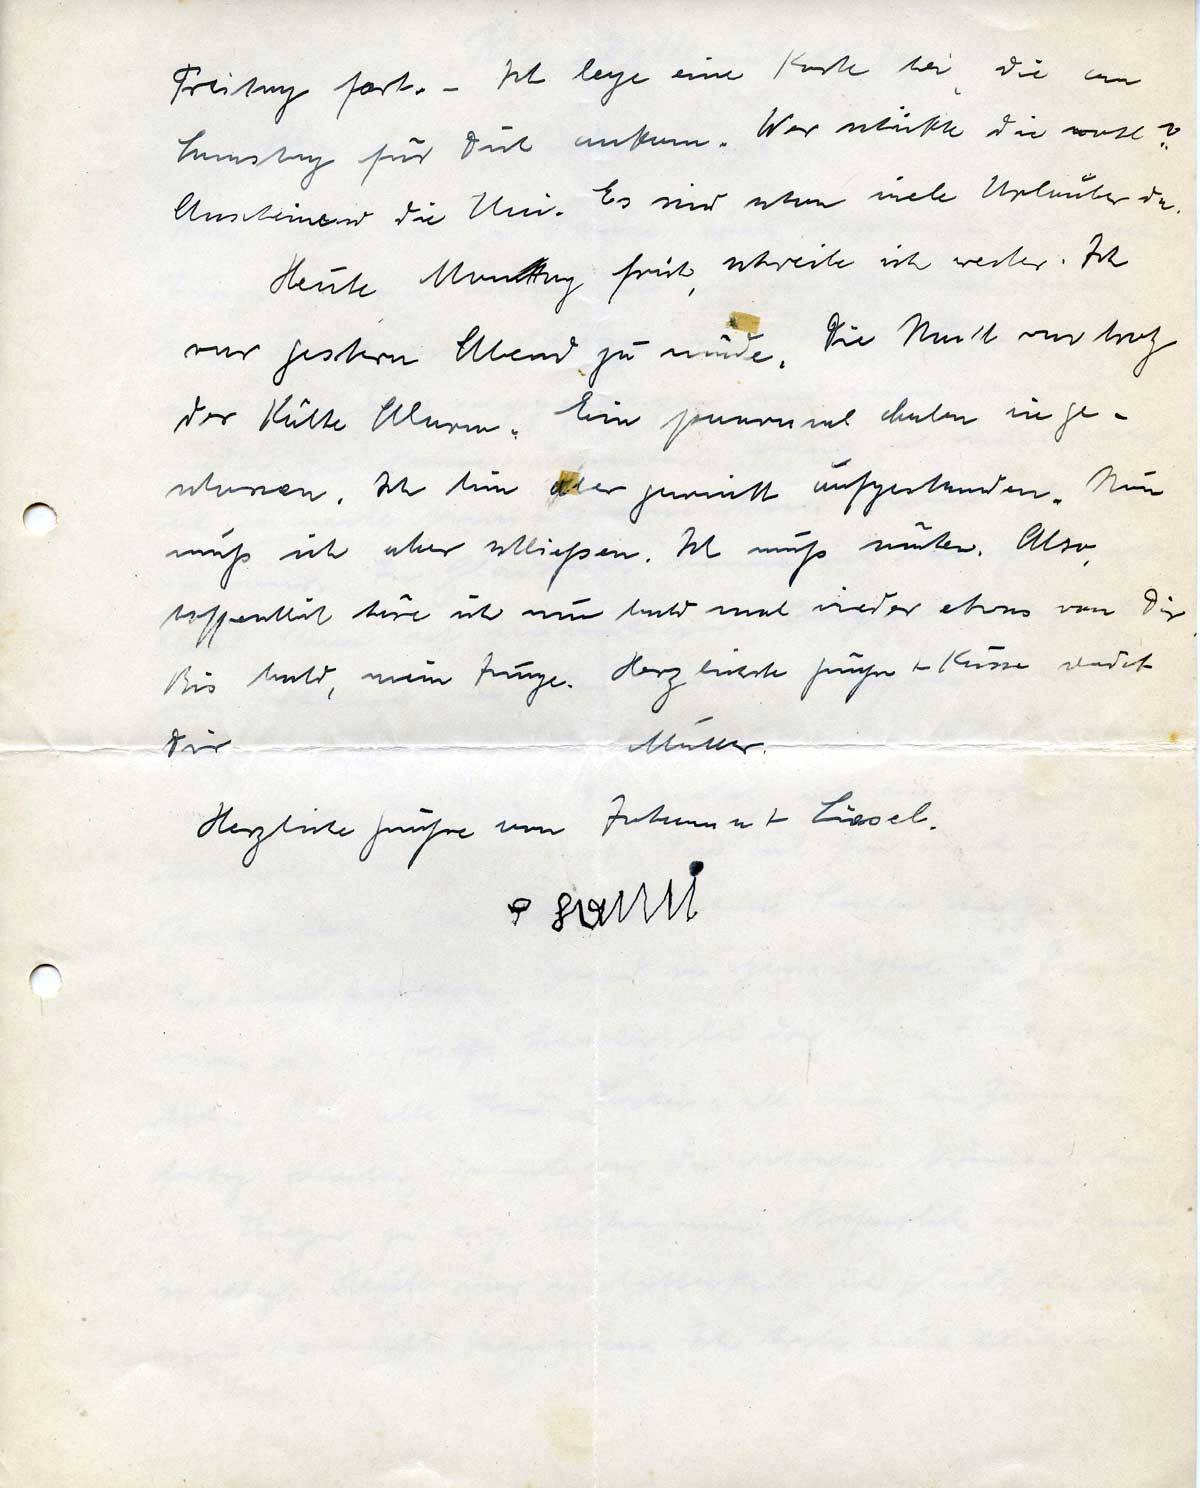 Freitag fort. – Ich lege eine Karte bei, die am
Samstag für Dich ankam. Wer schickte die wohl?
Anscheinend die Uni. Es sind schon viele Urlauber da.
Heute Montag früh, schreibe ich weiter. Ich
war gestern Abend zu müde. Die Nacht war trotz
der Kälte Alarm. Ein paarmal haben sie ge-
schossen. Ich bin aber garnicht aufgestanden. Nun
muß ich aber schließen. Ich muß nähen. Also,
hoffentlich höre ich nun bald mal wieder etwas von Dir.
Bis bald, mein Junge. Herzlichste Grüße + Küsse sendet
Dir Mutter.
Herzliche Grüße von Johanna + Liesel.